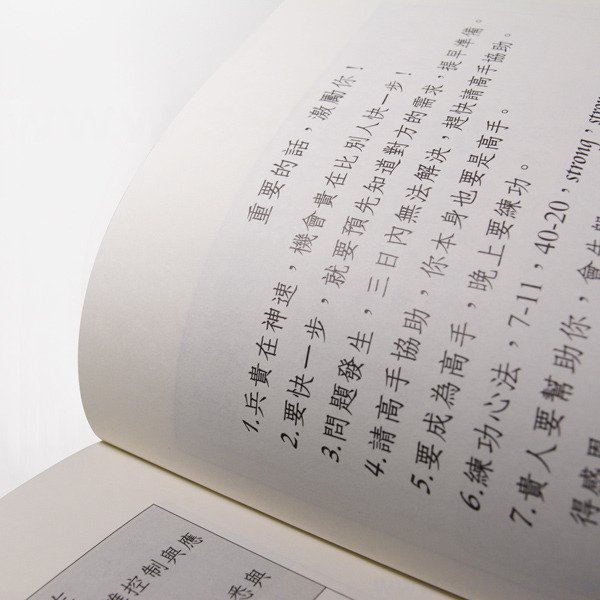 重要的話，激勵你！
1.兵貴在神速，機會貴在比別人快一步！
2.要快一步，就要預先知道對方的需求，提早準備。
3.問題發生，三日內無法解決，趕快請高手協助。
4.請高手協助，你本身也要是高手。
5.要成為高手，晚上要練功。
6.練功心法，7-11，40-20，strong，
7.貴人要幫助你，會先
得感恩
控制與應
悉與